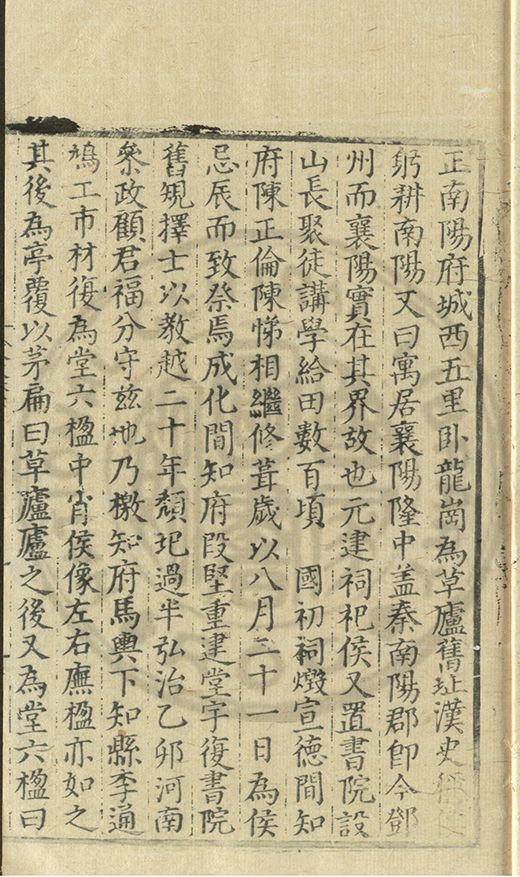 正南陽府城西五里卧龍崗為草廬舊址漢史稱侯
躬耕南陽又曰寓居襄陽隆中盖秦南陽郡即今鄧
州而襄陽實在其界故也元建祠祀侯又置書院設
山長聚徒講學給田數百頃　國初祠燬宣德間知
府陳正倫陳悌相繼修葺歲以八月二十一日為侯
忌辰而致祭焉成化間知府段堅重建堂宇復書院
舊規擇士以教越二十年頹圯過半弘治乙卯河南
叅政顧君福分守兹地乃檄知府馬輿下知縣李通
鳩工市材復為堂六楹中肖侯像左右廡楹亦如之
其後為亭覆以茅扁曰草廬廬之後又為堂六楹曰